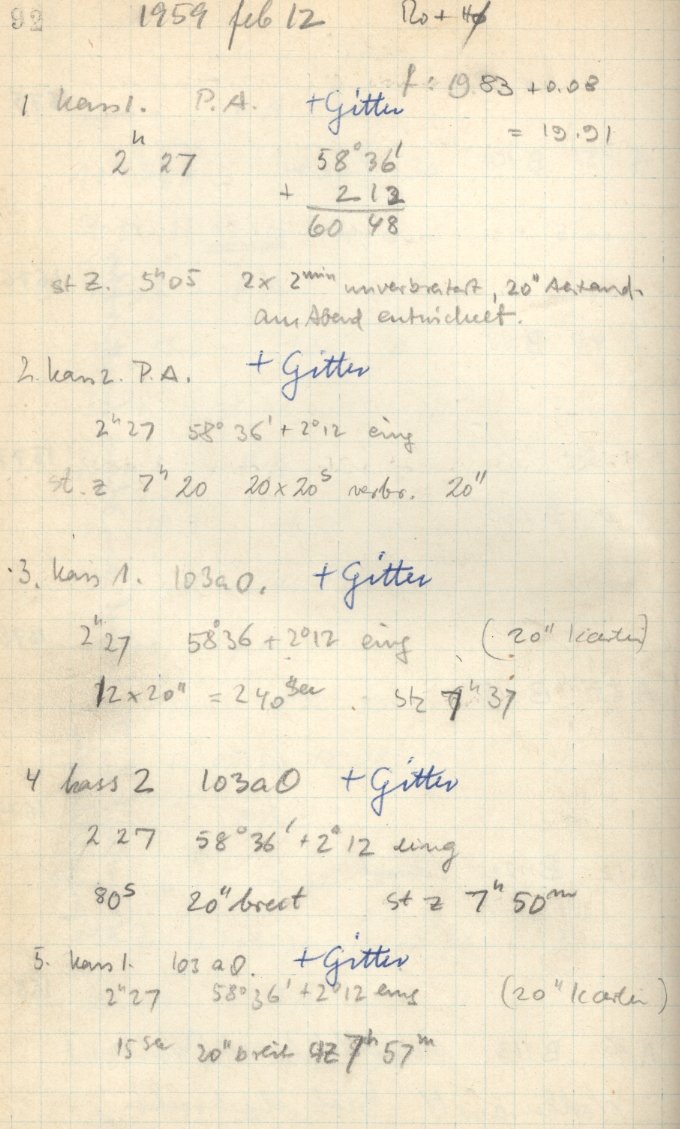 92 1959 feb 12 Ro +
f: 19.83 + 0.08
1 kass 1. P.A. + Gitter
= 19.91
2ʰ 27 58° 36'
+ 2 12
60 48
st Z. 5ʰ 05 2 x 2ᵐⁱⁿ unverbreitert, 20"
am Abend entwickelt.
2. kass 2. P.A. + Gitter
2ʰ 27 58° 36' + 2° 12 eing
st. z 7ʰ 20 20 x 20ˢ verbr. 20"
3. kass 1. 103aO. + Gitter
2ʰ 27 58° 36 + 2° 12 eing (20"
12 x 20" = 240 ˢᵉᶜ stz 7ʰ 37
4 kass 2 103aO + Gitter
2 27 58° 36' + 2° 12 eing
80ˢ 20" breit st z 7ʰ 50ᵐ
5. kass 1. 103 aO. + Gitter
2ʰ 27 58° 36' + 2° 12 eing (20"
15 ˢᵉᶜ 20" breit stz 7ʰ 57ᵐ